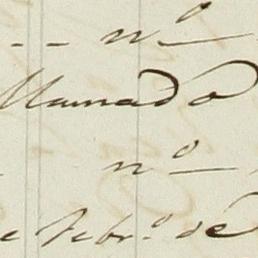 -- nº
Mamado
nº
e Febrº. de